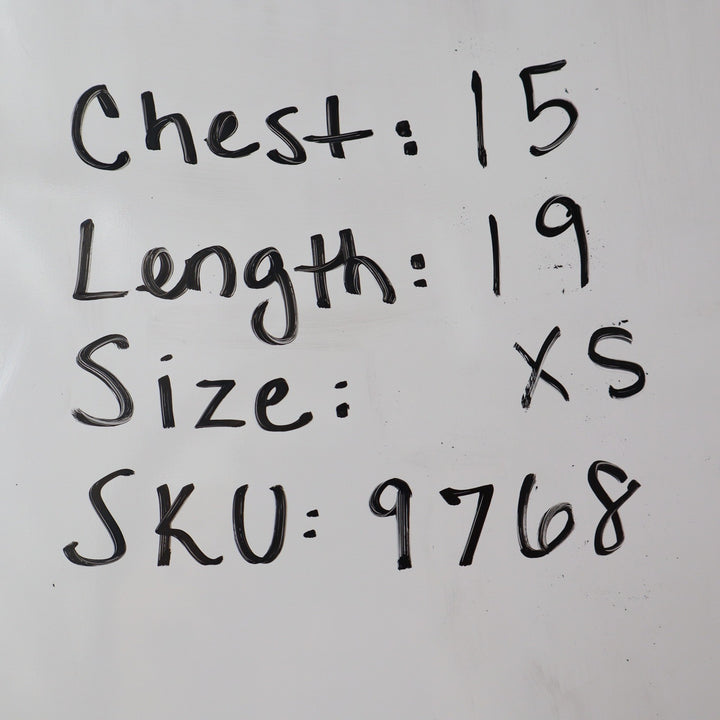 Chest: 15
Length: 19
Size: XS
SKU: 9768